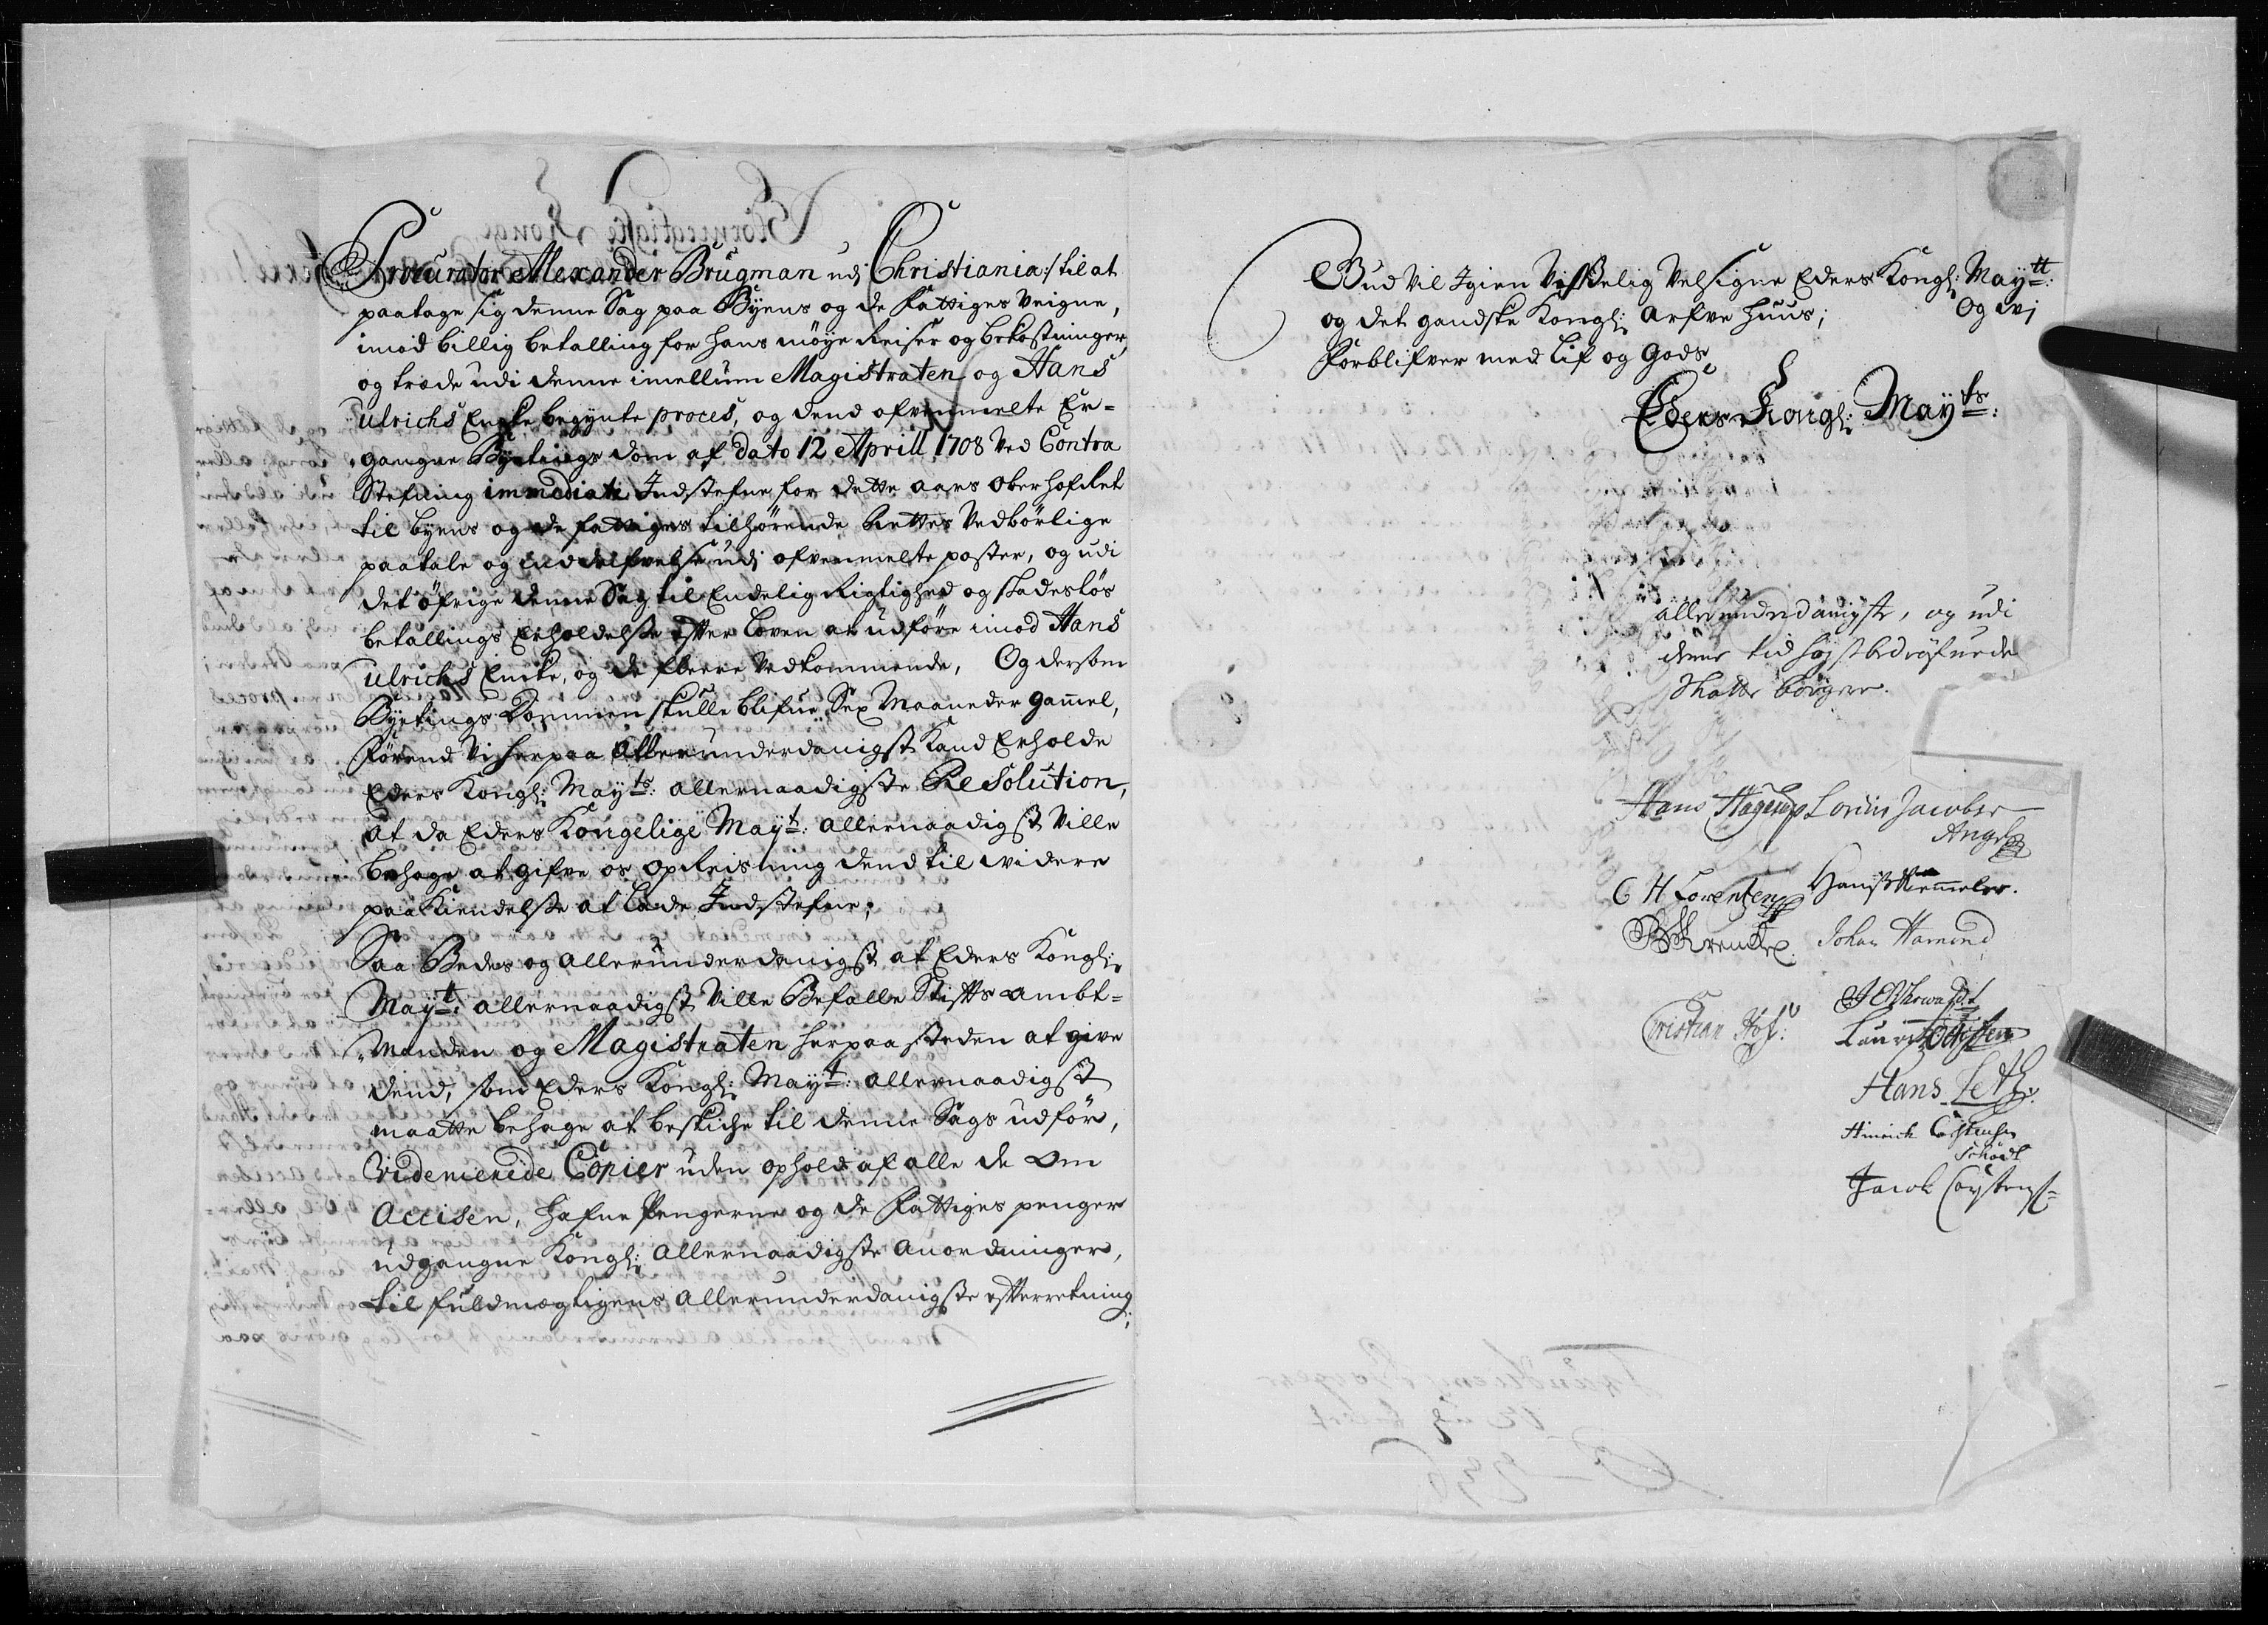 Procurator Alexander Brugman udj Christiania:/ til at
paatage sig denne Sag paa Byens og de Fattiges Veigne,
imod billig betalling for hans møye Reiser og bekostninger,
og træde udi denne imellum Magistraten og Hans
Ulrichs Encke begynte proces, og dend ofvenmelte Er-
gangne Byetings dom af dato 12 Aprill 1708 Ved Contra
Stefning immediate Indstefne for dette aars Oberhofret
til byens og de fattiges tilhørende Rettes Vedbørlige
paatale og inddelfvelse udj ofvenmelte poster, og udi
det øfrige denne Sag til Endelig Rigtighed og skadesløs
betallings Erholdelse efter Loven at udføre imod Hans
Ulrichs Encke, og de fleere Vedkommende, Og dersom
Byetings Dommen skulle blifue Sex Maaneder gammel,
førend Vi herpaa Allerunderdanigst Kand Erholde
Eders Kongl: Mayts: allernaadigste Resolution,
at da Eders Kongelige Mayt: allernaadigst Ville
behage at gifve os opReisning dend til widere
paaKiendelse at lade Indstefne;
Saa Bedes og allerunderdanigst at Eders Kongl:
Mayt: allernaadigst Ville Befalle Stifts ambt-
Manden og Magistraten herpaa steden at give
dend, som Eders Kongl: Mayt: allernaadigst
maatte behage at beskiche til denne Sags udføre,
Videmerede Copier uden ophold af alle de om
Accisen, hafne Pengerne og de Fattiges penger
udgangne Kongl: Allernaadigste Anordninger,
til fuldmægtigens allerunderdanigste efterretning;
Gud Vil Igien Visselig Velsigne Eders Kongl: Maytt:
og det gandske Kongl: Arfve Huus; Og Wj
forblifver med Lif og Gods
Eders Kongl: Mayts:
allerunderdanigste, og udi
denne tid højstbedrøfuede
Skatte borgere.
Hans Hagerup Lorens Jacobsen
Angel
C H Lorentzen Hans Kemmeler.
Johan Hamond
Cristian Hof:
Laurs
Hans Leth.
Hinrich Carstensen
Schódt
Jacob Carstens: